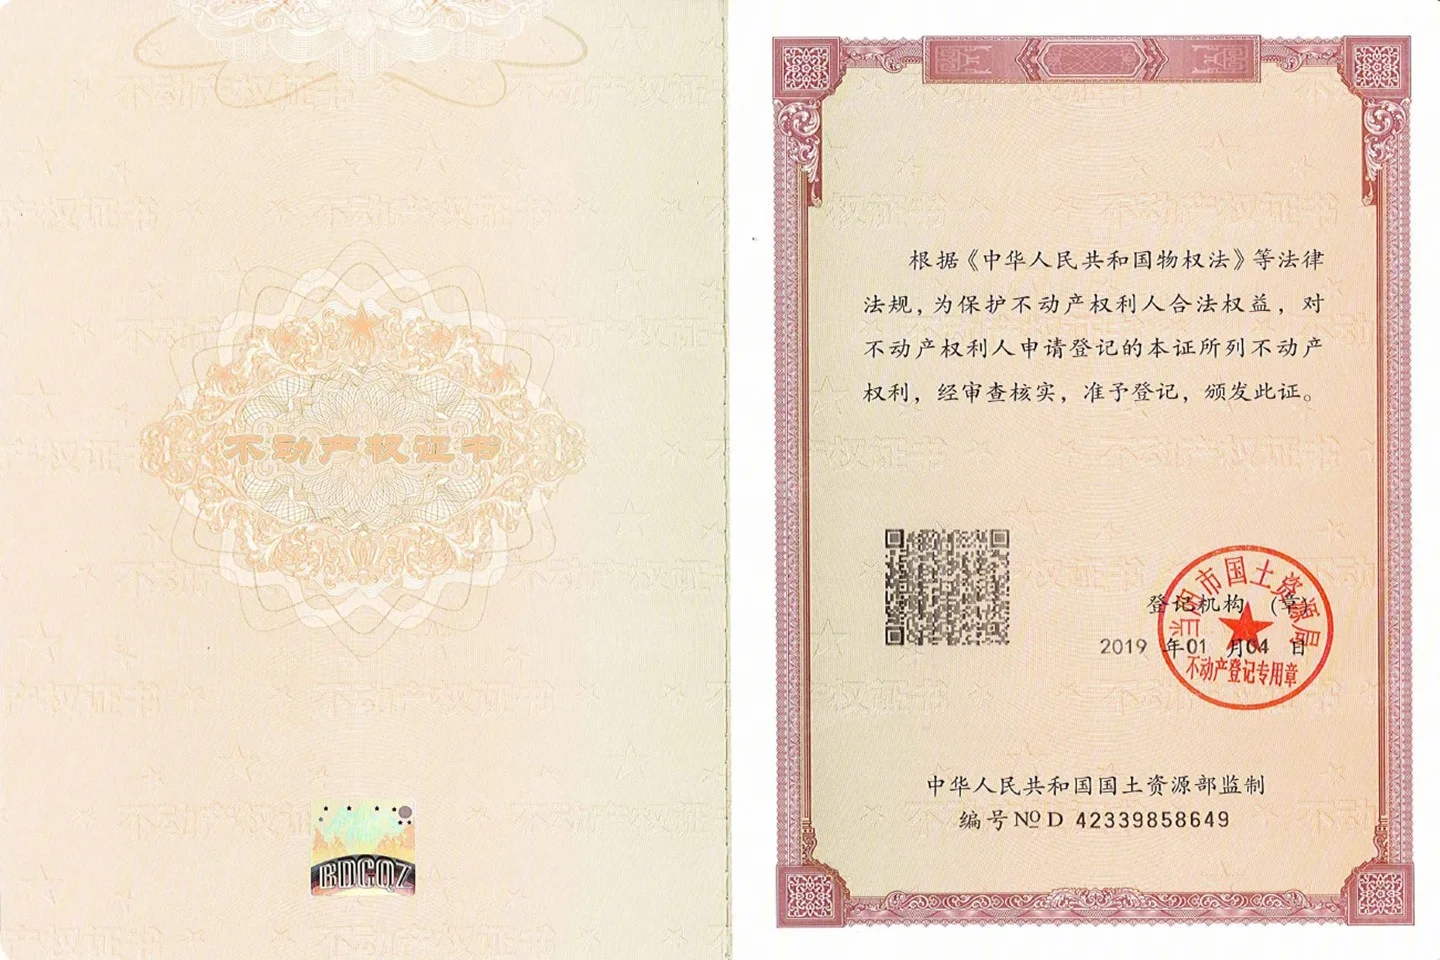 不动产权证书
BDCQZ
根据《中华人民共和国物权法》等法律
法规，为保护不动产权利人合法权益，对
不动产权利人申请登记的本证所列不动产
权利，经审查核实，准予登记，颁发此证。
当阳市国土资源局
登记机构 （章）
2019 年01 月04 日
不动产登记专用章
中华人民共和国国土资源部监制
编号 № D 42339858649